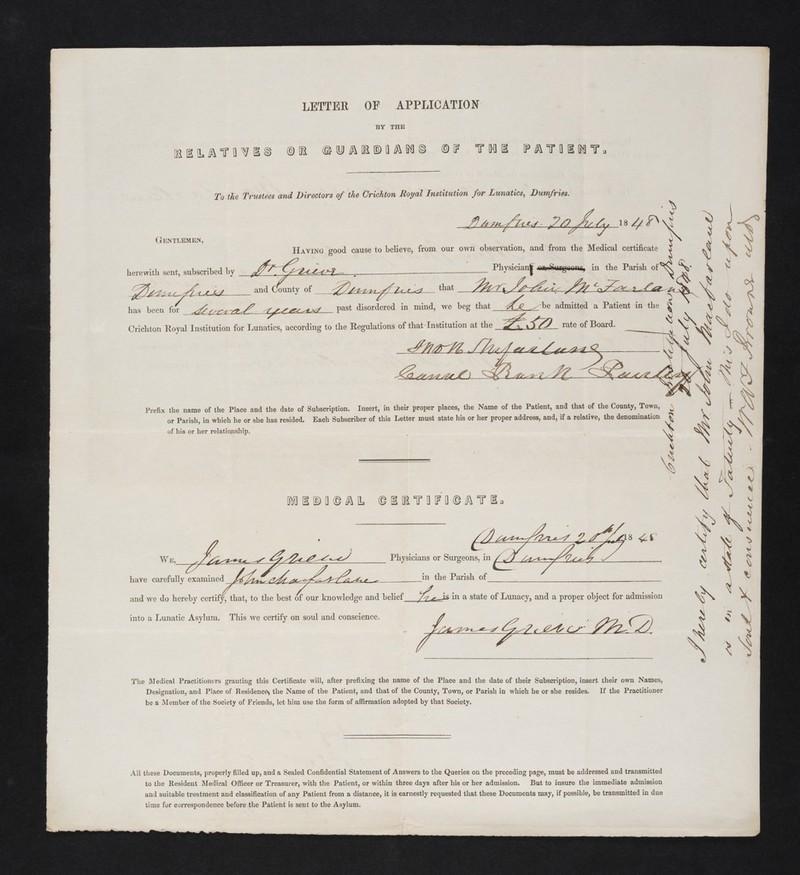 LETTER OF APPLICATION
BY THE
RELATIVES OR GUARDIANS OF THE PATIENT.
To the Trustees and Directors of the Crichton Royal Institution for Lunatics, Dumfries.
Dumfries 20 July 1848
GENTLEMEN,
HAVING good cause to believe, from our own observation, and from the Medical certificate
herewith sent, subscribed by Dr. Grieve Physician or Surgeons, in the Parish of
Dumfries and County of Dumfries that Mr John McFarlan
has been for several years past disordered in mind, we beg that he be admitted a Patient in the
Crichton Royal Institution for Lunatics, according to the Regulations of that Institution at the £50 rate of Board.
Mcfarlane
Canal Bank Paisley
Prefix the name of the Place and the date of Subscription. Insert, in their proper places, the Name of the Patient, and that of the County, Town,
or Parish, in which he or she has resided. Each Subscriber of this Letter must state his or her proper address, and, if a relative, the denomination
of his or her relationship.
MEDICAL CERTIFICATE.
Dumfries 20th 1848
WE, James Grieve Physicians or Surgeons, in Dumfries
have carefully examined John Macfarlane in the Parish of
and we do hereby certify, that, to the best of our knowledge and belief he is in a state of Lunacy, and a proper object for admission
into a Lunatic Asylum. This we certify on soul and conscience.
James Grieve M.D.
The Medical Practitioners granting this Certificate will, after prefixing the name of the Place and the date of their Subscription, insert their own Names,
Designation, and Place of Residence, the Name of the Patient, and that of the County, Town, or Parish in which he or she resides. If the Practitioner
be a Member of the Society of Friends, let him use the form of affirmation adopted by that Society.
All these Documents, properly filled up, and a Sealed Confidential Statement of Answers to the Queries on the preceding page, must be addressed and transmitted
to the Resident Medical Officer or Treasurer, with the Patient, or within three days after his or her admission. But to insure the immediate admission
and suitable treatment and classification of any Patient from a distance, it is earnestly requested that these Documents may, if possible, be transmitted in due
time for correspondence before the Patient is sent to the Asylum.
Crichton Institution Dumfries
July 1848
I hereby certify that Mr John Macfarlane
is in a state of Fatuity - this I do upon
Soul & conscience. W.A.F. Browne